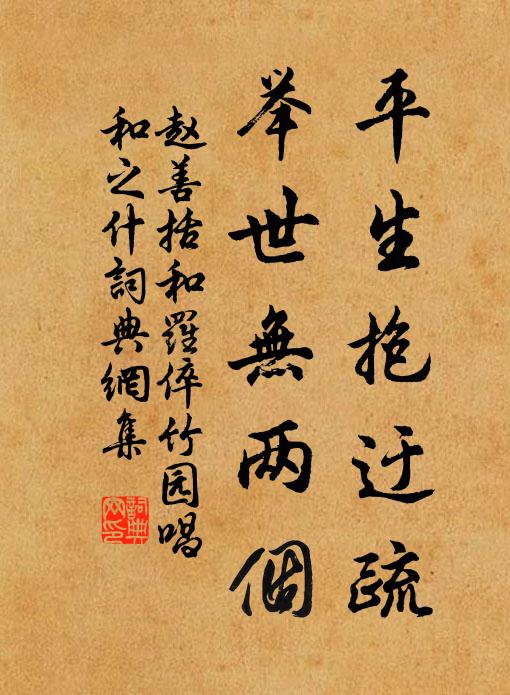 平生抱迂疏
举世無两個
赵善括和羅倅竹园唱
和之什詞典網集
詞典网印